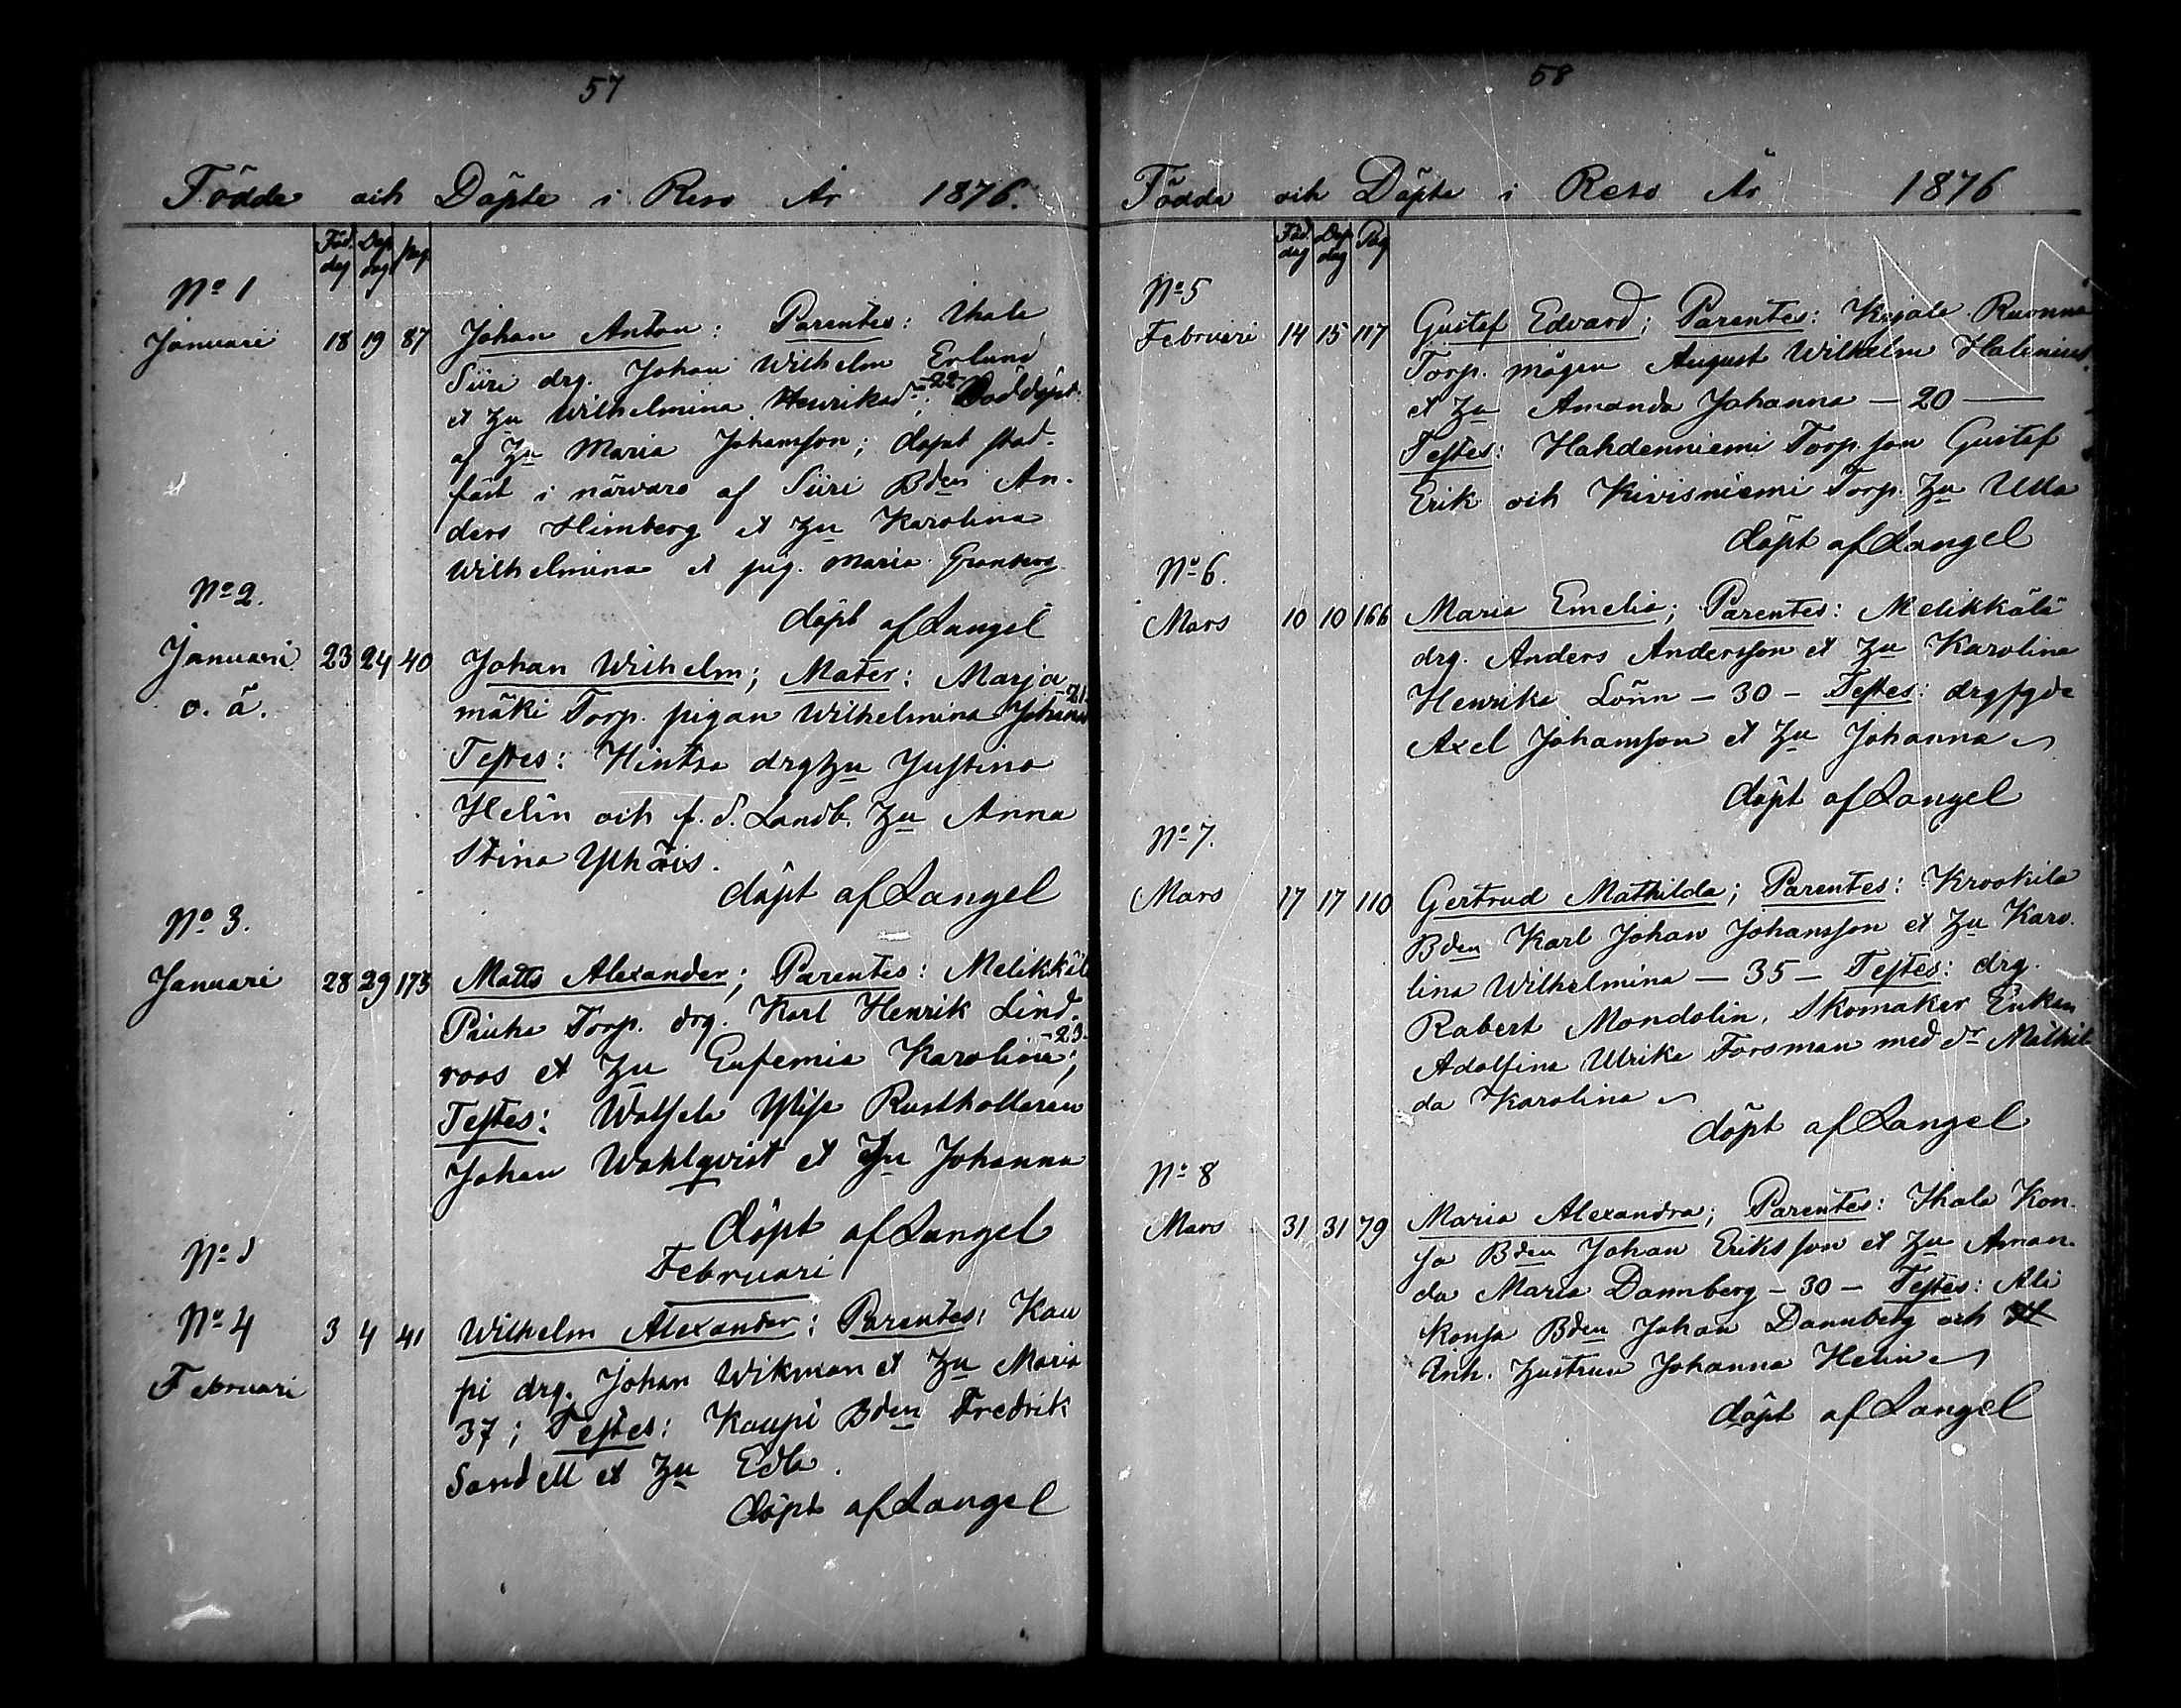 57
Födde och Döpte i Reso År 1876.
Föd. dag Döp dag pag.
No 1
Januari 18 19 87 Johan Anton: Parentes: Ihala
Siiri drg. Johan Wilhelm Erlund
et Hu Wilhelmina Henriksdr; -22- Nöddöpt
af Hu Maria Johansson; dopet stad-
fäst i närvaro af Siiri Bden An-
ders Himberg et Hu Karolina
Wilhelmina et pig. Maria Granberg
döpt af Langel
No 2.
Januari 23 24 40 Johan Wilhelm; Mater: Marja
o. ä. mäki Torp. pigan Wilhelmina Johansd -21-
Testes: Hintsa drghu Justina
Helin och f. d. Landb. Hu Anna
Stina Ylhäis.
döpt af Langel
No 3.
Januari 28 29 173 Matts Alexander; Parentes: Melikkälä
Torp. drg. Karl Henrik Lind-
roos et Hu Eufemia Karolina; -23-
Testes: Rusthollaren
Johan Wahlqvist et Hu Johanna
döpt af Langel
Februari
No 4 3 4 41 Wilhelm Alexander; Parentes: Kau
Februari pi drg. Johan Wikman et Hu Maria
37; Testes: Kaupi Bden Fredrik
Sandell et Hu Edla.
döpt af Langel
58
Födda och Döpta i Reso År 1876
Föd. dag Döp dag Pag
No 5
Februari 14 15 117 Gustef Edvard; Parentes: Kajala Ruonna
Torp. mågen August Wilhelm Halenius
et Hu Amanda Johanna - 20 -
Testes: Hahdenniemi Torp. son Gustef
Erik och Kivisniemi Torp. Hu Ulla
döpt af Langel
No 6.
Mars 10 10 166 Maria Emelia; Parentes: Melikkälä
drg. Anders Andersson et Hu Karolina
Henrika Lönn - 30 - Testes:
Axel Johansson et Hu Johanna
döpt af Langel
No 7.
Mars 17 17 110 Gertrud Mathilda; Parentes: Krookila
Bden Karl Johan Johansson et Hu Karo-
lina Wilhelmina - 35 - Testes: drg.
Robert Mondolin, Skomaker Enkan
Adolfina Ulrika Forsman med dr Mathil
da Karolina
döpt af Langel
No 8
Mars 31 31 79 Maria Alexandra; Parentes: Ihala Kon-
sa Bden Johan Eriksson et Hu Aman-
da Maria Dannberg - 30 - Testes: Ali
Konsa Bden Johan Dannberg och
Inh. Hustrun Johanna Helin
döpt af Langel